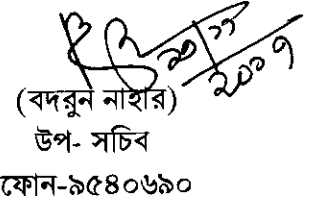 (বদরুন নাহার)
উপ- সচিব
ফোন-৯৫৪০৬৯০